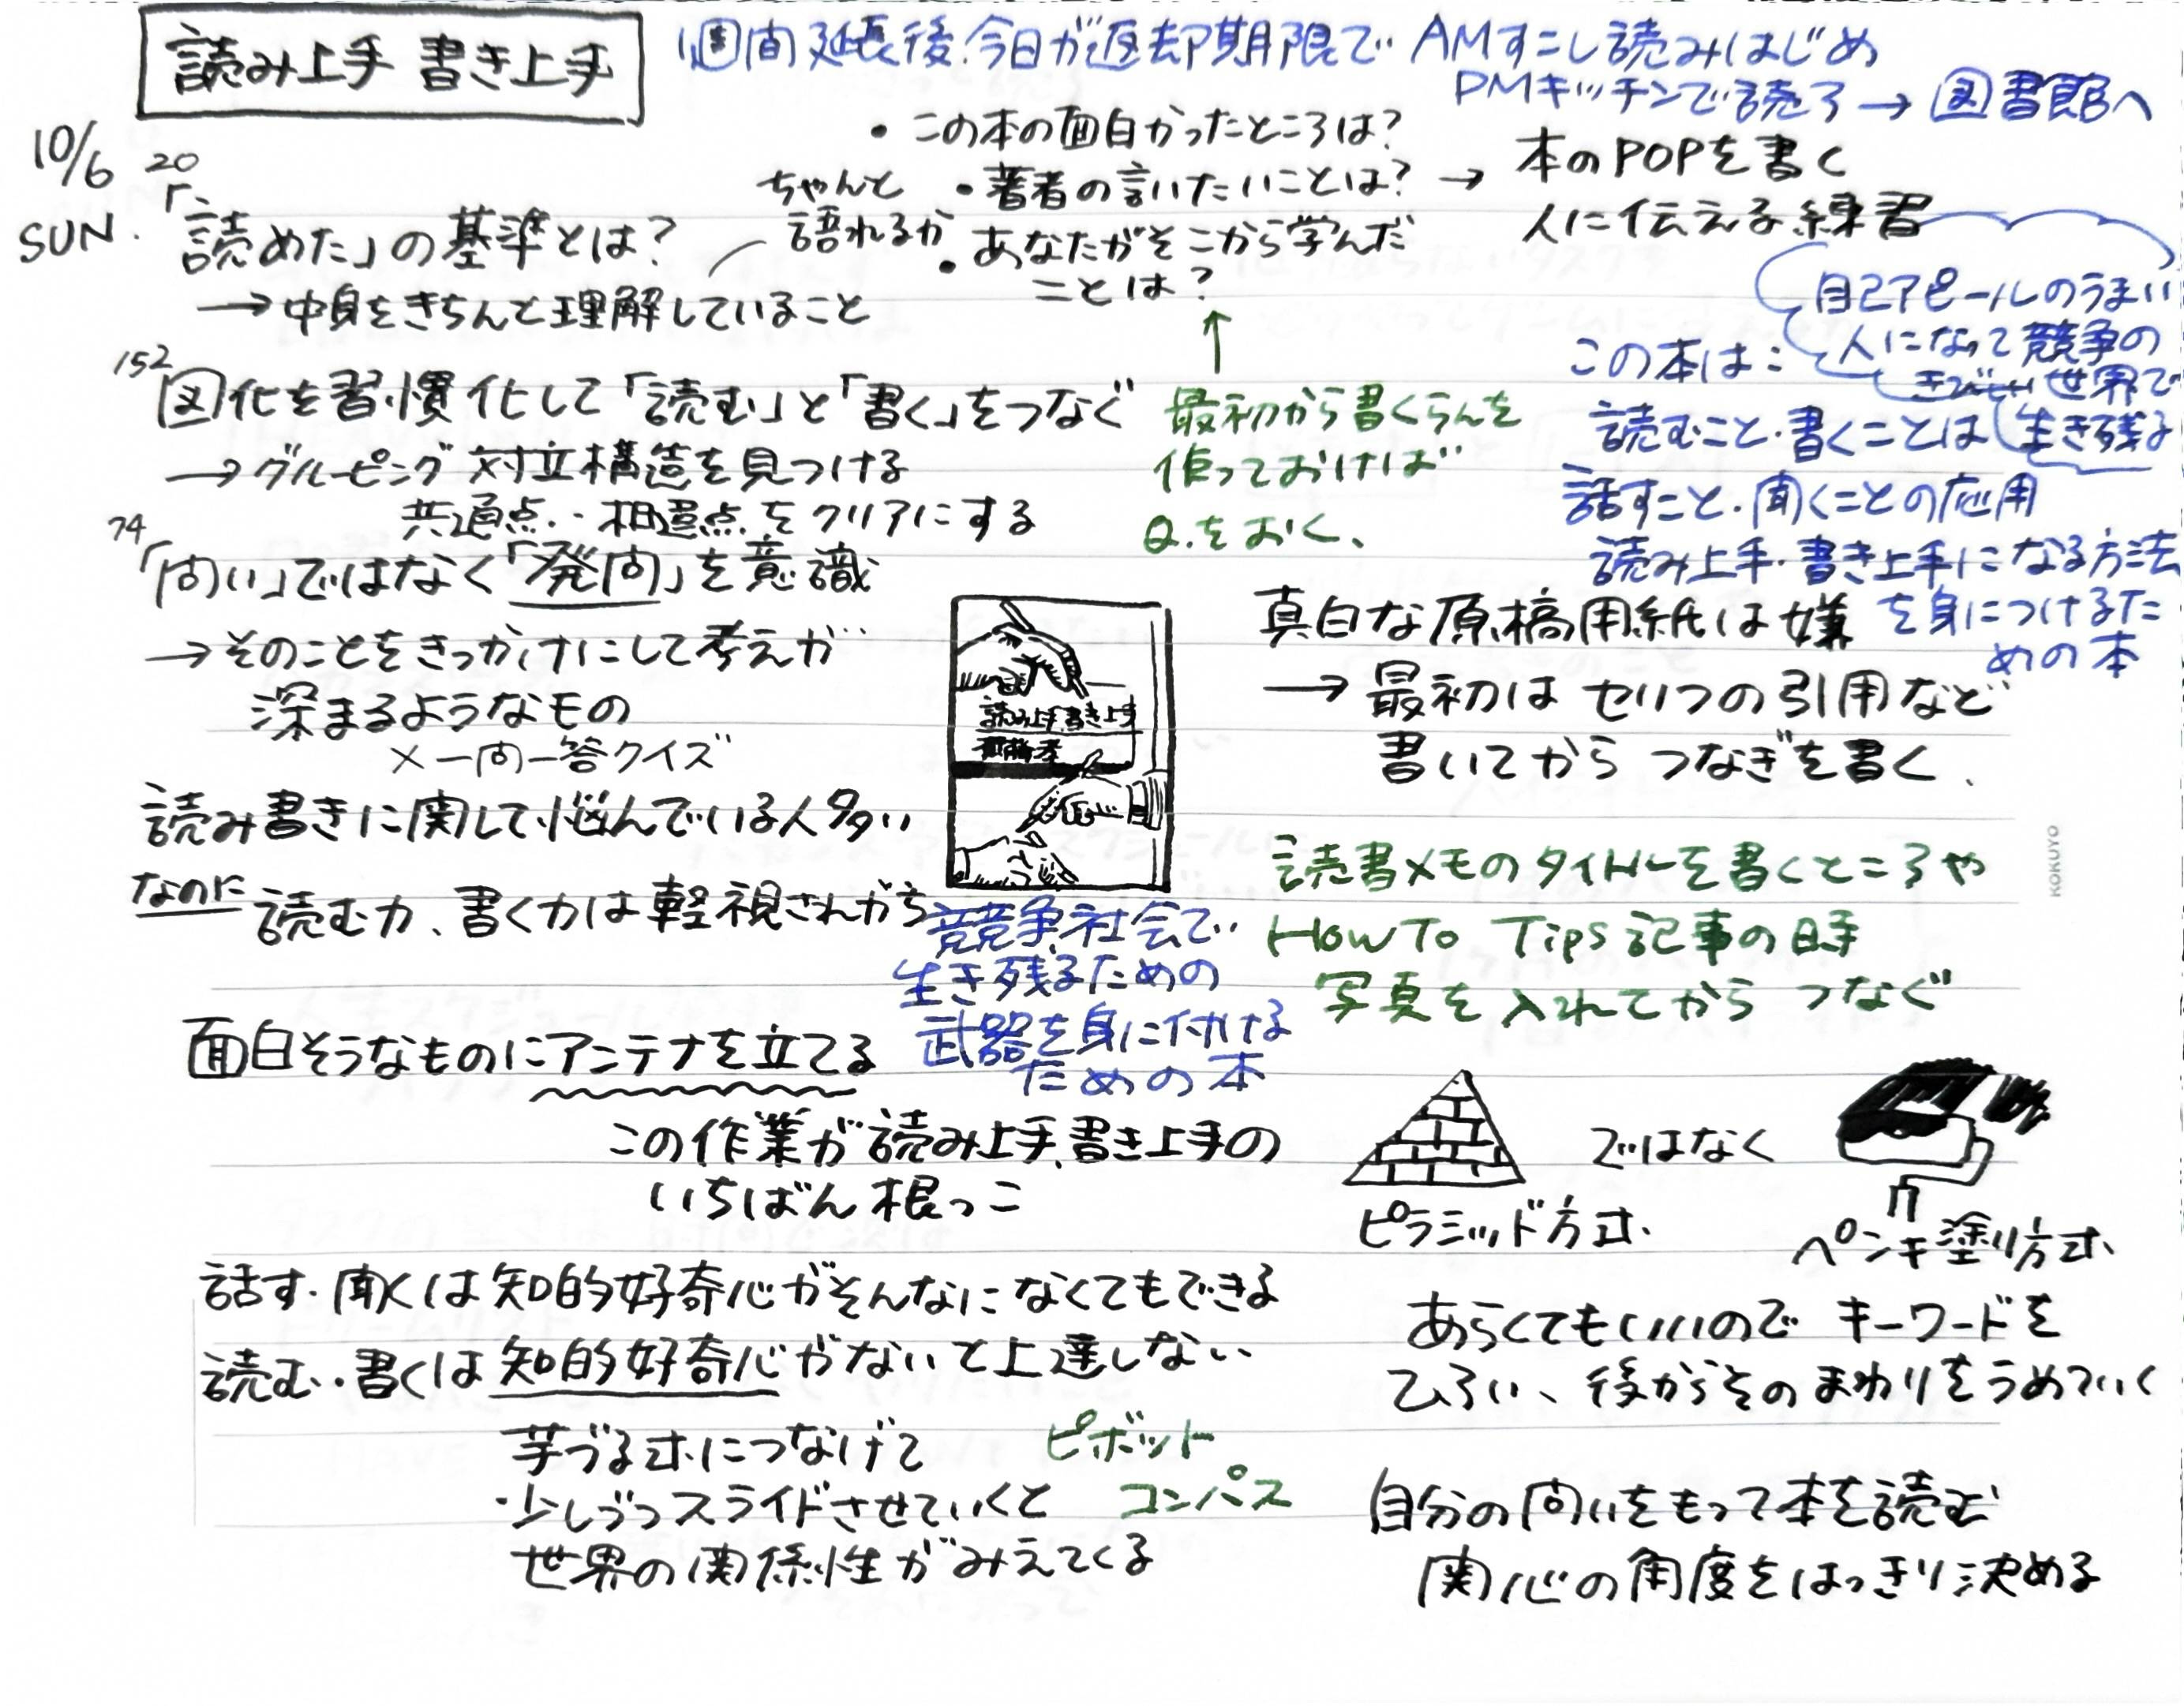 読み上手 書き上手
1週間延長後、今日が返却期限で AMすこし読みはじめ
PMキッチンで読了→図書館へ
10/6
SUN.
20
「読めた」の基準とは?
→中身をきちんと理解していること
ちゃんと
語れるか
・この本の面白かったところは?
・著者の言いたいことは?
・あなたがそこから学んだ
ことは?
→ 本のPOPを書く
人に伝える練習
↑
最初から書くらんを
作っておけば
Q.をおく、
自己アピールのうまい
人になって競争の
きびしい世界で
生き残る
この本は:
読むこと・書くことは
話すこと・聞くことの応用
読み上手・書き上手になる方法
を身につけるた
めの本
152
図化を習慣化して「読む」と「書く」をつなぐ
→グルーピング 対立構造を見つける
共通点・相違点をクリアにする
74
「問い」ではなく「発問」を意識
→そのことをきっかけにして考えが
深まるようなもの
×一問一答クイズ
読み書きに関して悩んでいる人多い
なのに
読む力、書く力は軽視されがち
読み上手 書き上手
齋藤孝
競争社会で
生き残るための
武器を身に付ける
ための本
真白な原稿用紙は嫌
→最初はセリフの引用など
書いてから つなぎを書く、
読書メモのタイトルを書くところや
How To Tips記事の時
写真を入れてから つなぐ
KOKUYO
面白そうなものにアンテナを立てる
この作業が読み上手、書き上手の
いちばん根っこ
ピラミッド方式、
ではなく
ペンキ塗り方式、
あらくてもいいので キーワードを
ひろい、後からそのまわりをうめていく
話す・聞くは知的好奇心がそんなになくてもできる
読む・書くは知的好奇心がないと上達しない
芋づる式につなげて
・少しづつスライドさせていくと
世界の関係性がみえてくる
ピボット
コンパス
自分の問いをもって本を読む
関心の角度をはっきり決める